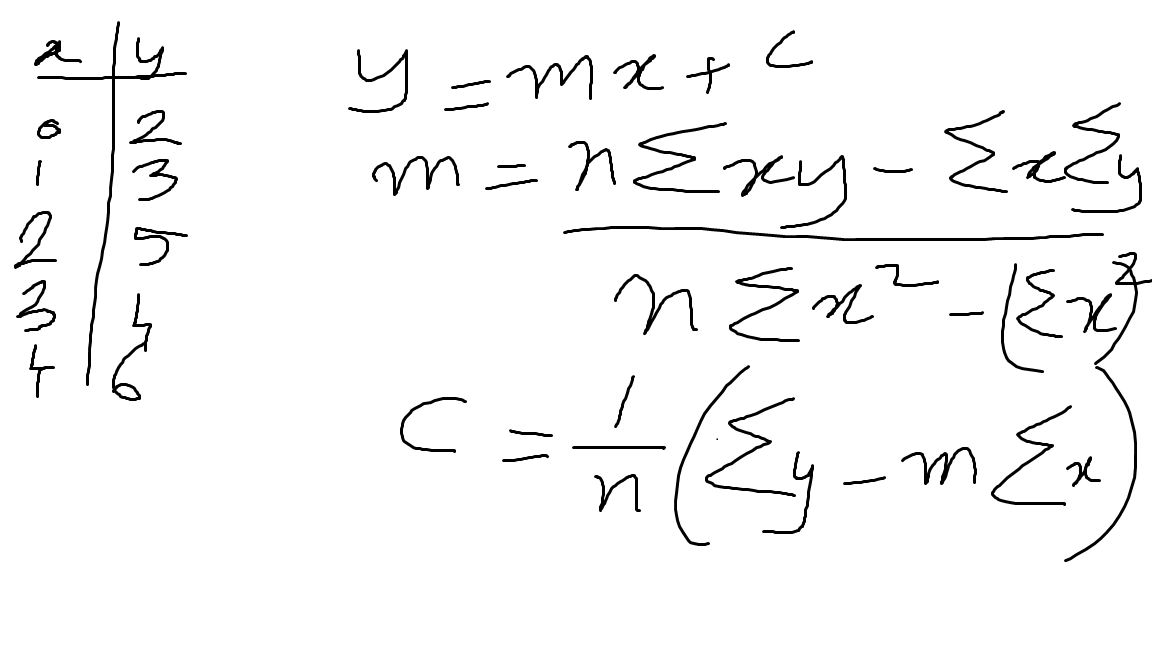 x y
0 2
1 3
2 5
3 4
4 6
y = mx + c
m = n∑xy - ∑x∑y
n∑x² - (∑x)²
c = 1/n (∑y - m∑x)